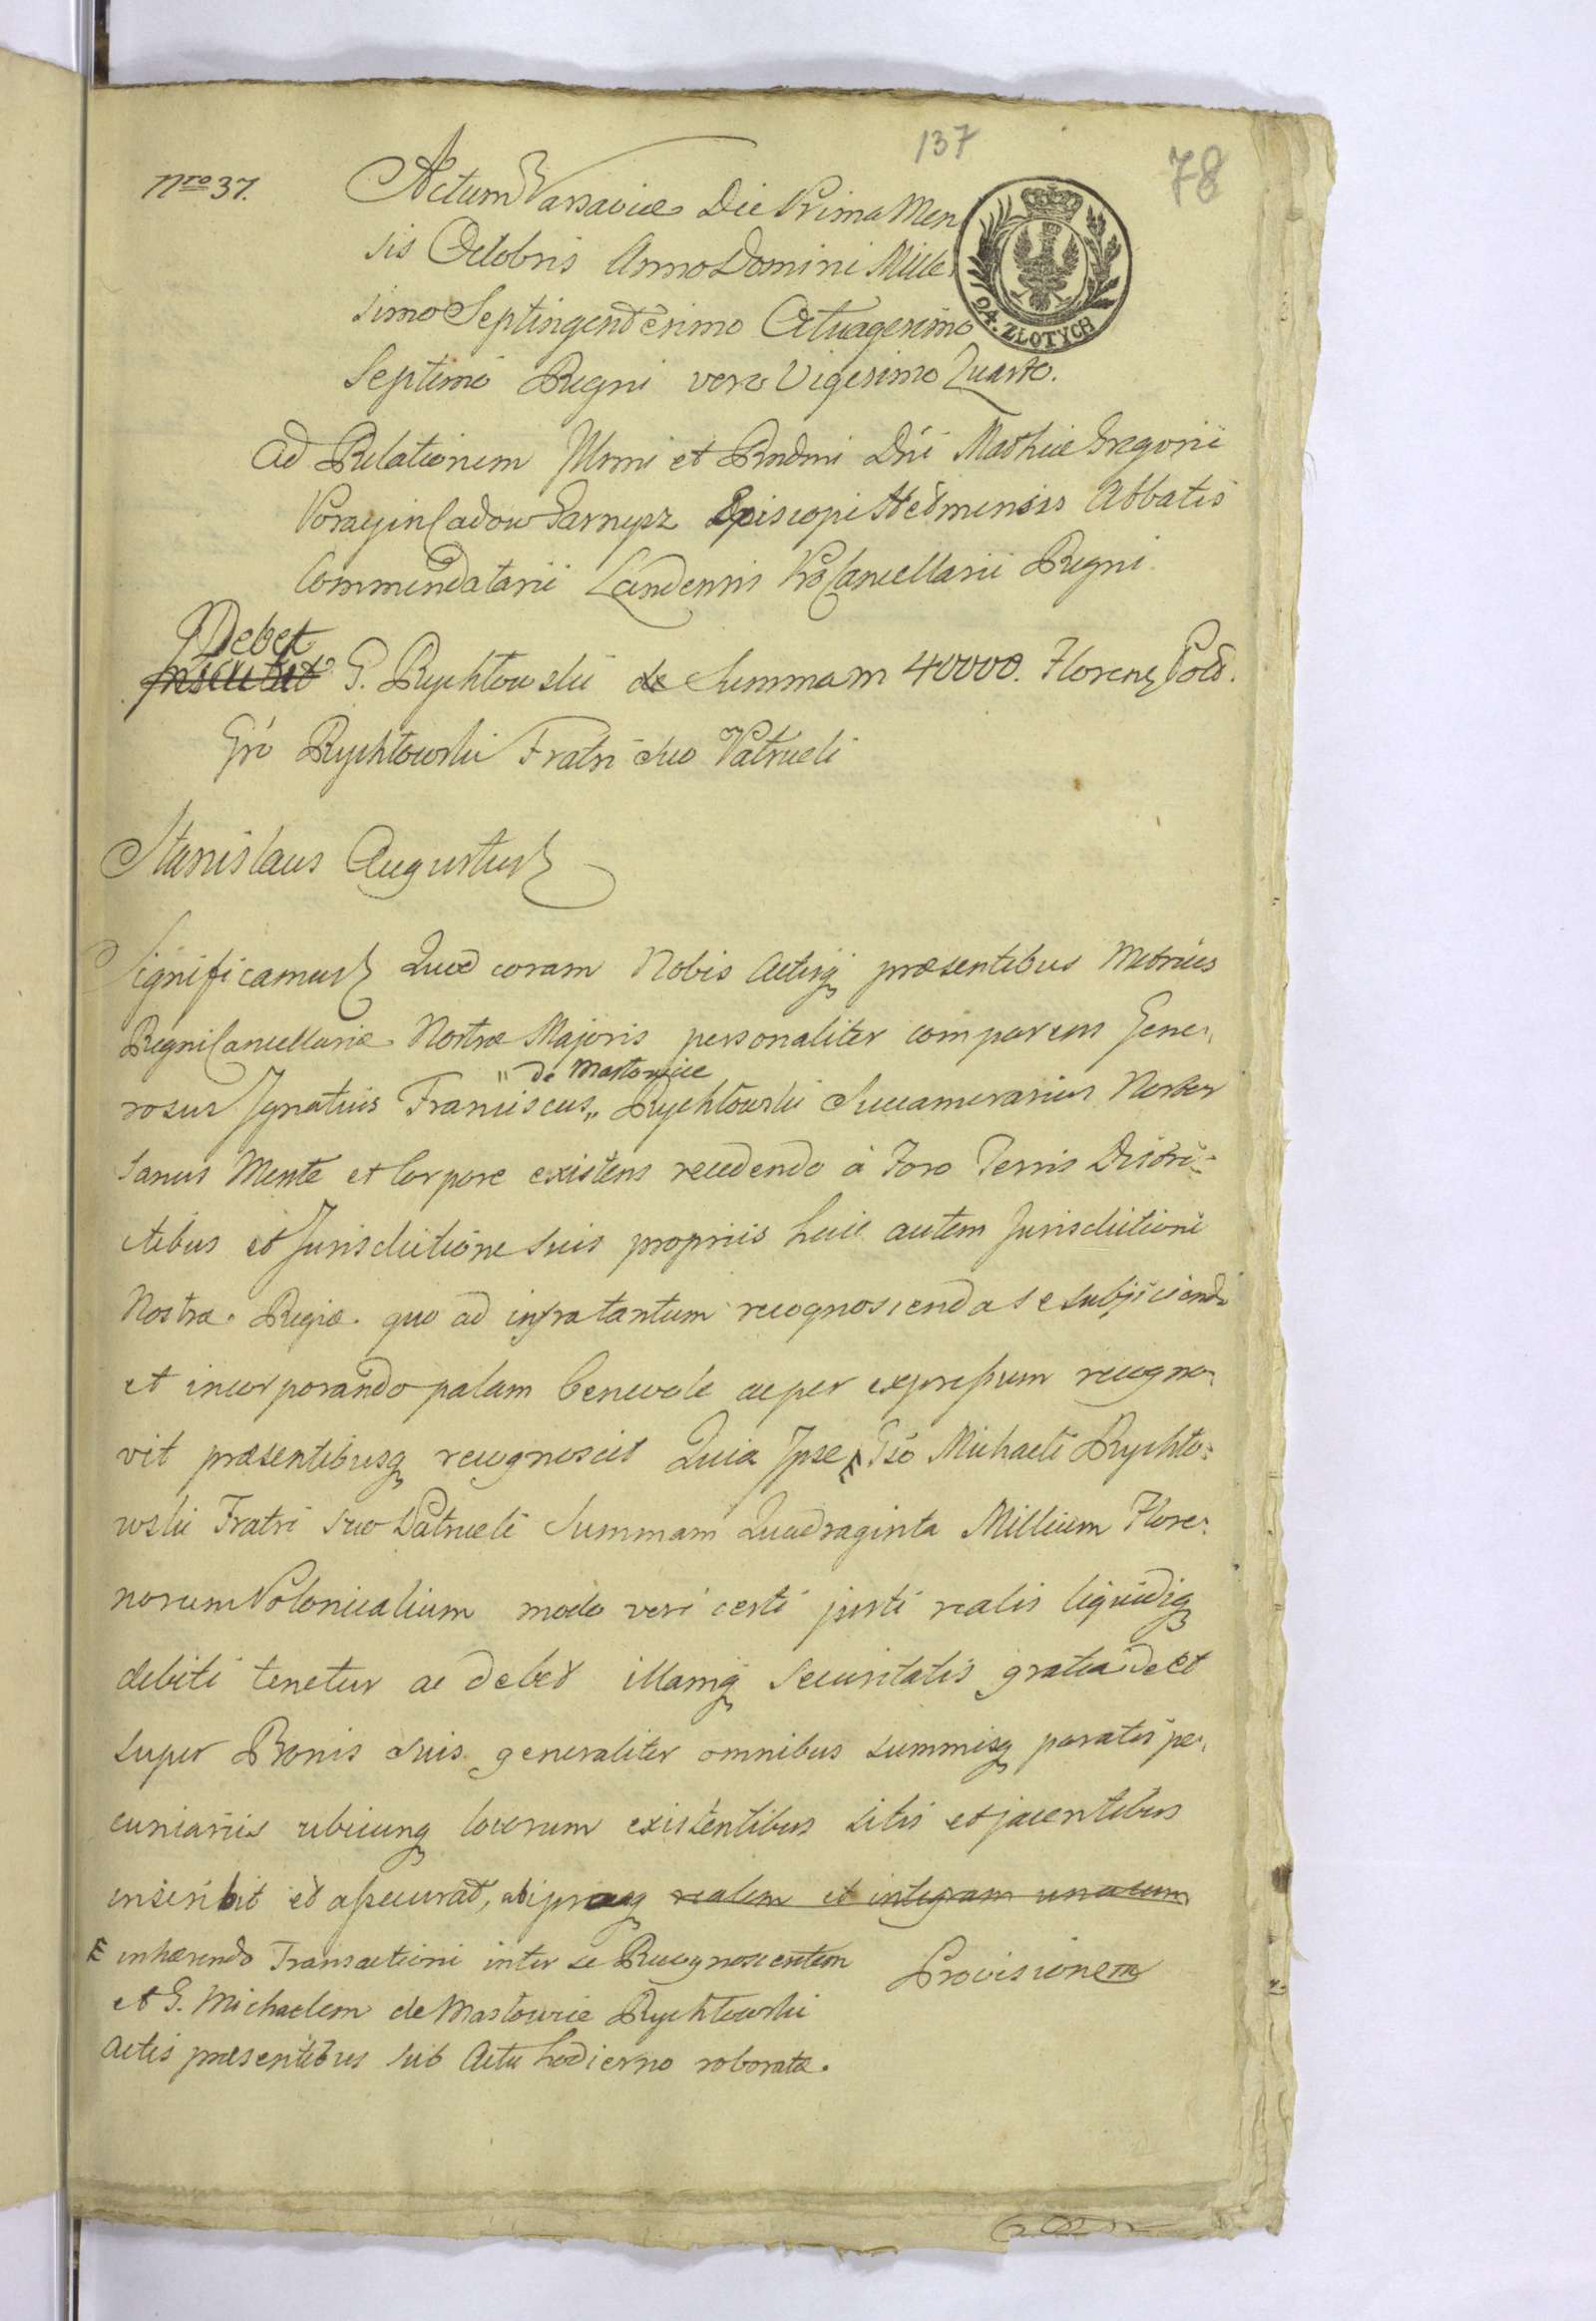 137
78
Nro 37.
Actum Varsaviæ Die Prima Men
sis Octobris Anno Domini Mille
24. ZŁOTYCH
simo Septingentesimo Octuagesimo
Septimo Regni vero Vigesimo Quarto.
Ad Relationem Illmi et Rndmi Dńi Mathiæ Gregorii
Poray in Radow Garnysz Episcopi Chelmensis Abbatis
Commendatarii Landensis ProCancellarii Regni.
Debet
Inscribit G. Rychłowski de Summam 40000. Floreng Pol.
Gró Rychłowski Fratri suo Patrueli
Stanislaus Augustus
Significamus Quod coram Nobis Actisq præsentibus Metrices
Regni Cancellariæ Nostræ Majoris personaliter comparens Gene,
" de Masłowice
rosus Ignatius Franciscus,, Rychłowski Succamerarius Noster
Sanus Mente et Corpore existens recedendo à Foro Terris Distri=
ctibus et Jurisdictione suis propriis huic autem Jurisdictioni
Nostræ Regiæ quo ad infra tantum recognoscenda se subjiciendo
et incorporando palam benevole ac per expressum recogno,
vit præsentibusq recognoscit Quia Ipse Gso Michaeli Rychło=
wski Fratri suo Patrueli Summam Quadraginta Millium Flore=
norum Polonicalium modo veri certi justi realis liquidiq
debiti tenetur ac debet illamq Securitatis gratia de et
super Bonis suis generaliter omnibus summisq paratis pe,
cuniariis ubicunq locorum existentibus sitis et jacentibus
inscribit et assecurat, ab ipsaq realem et integram unacum
E inhærendo Transactioni inter se Recognoscentem
Provisionem
et G. Michaelem de Masłowice Rychłowski
Actis præsentibus sub Actu hodierno roboratæ.